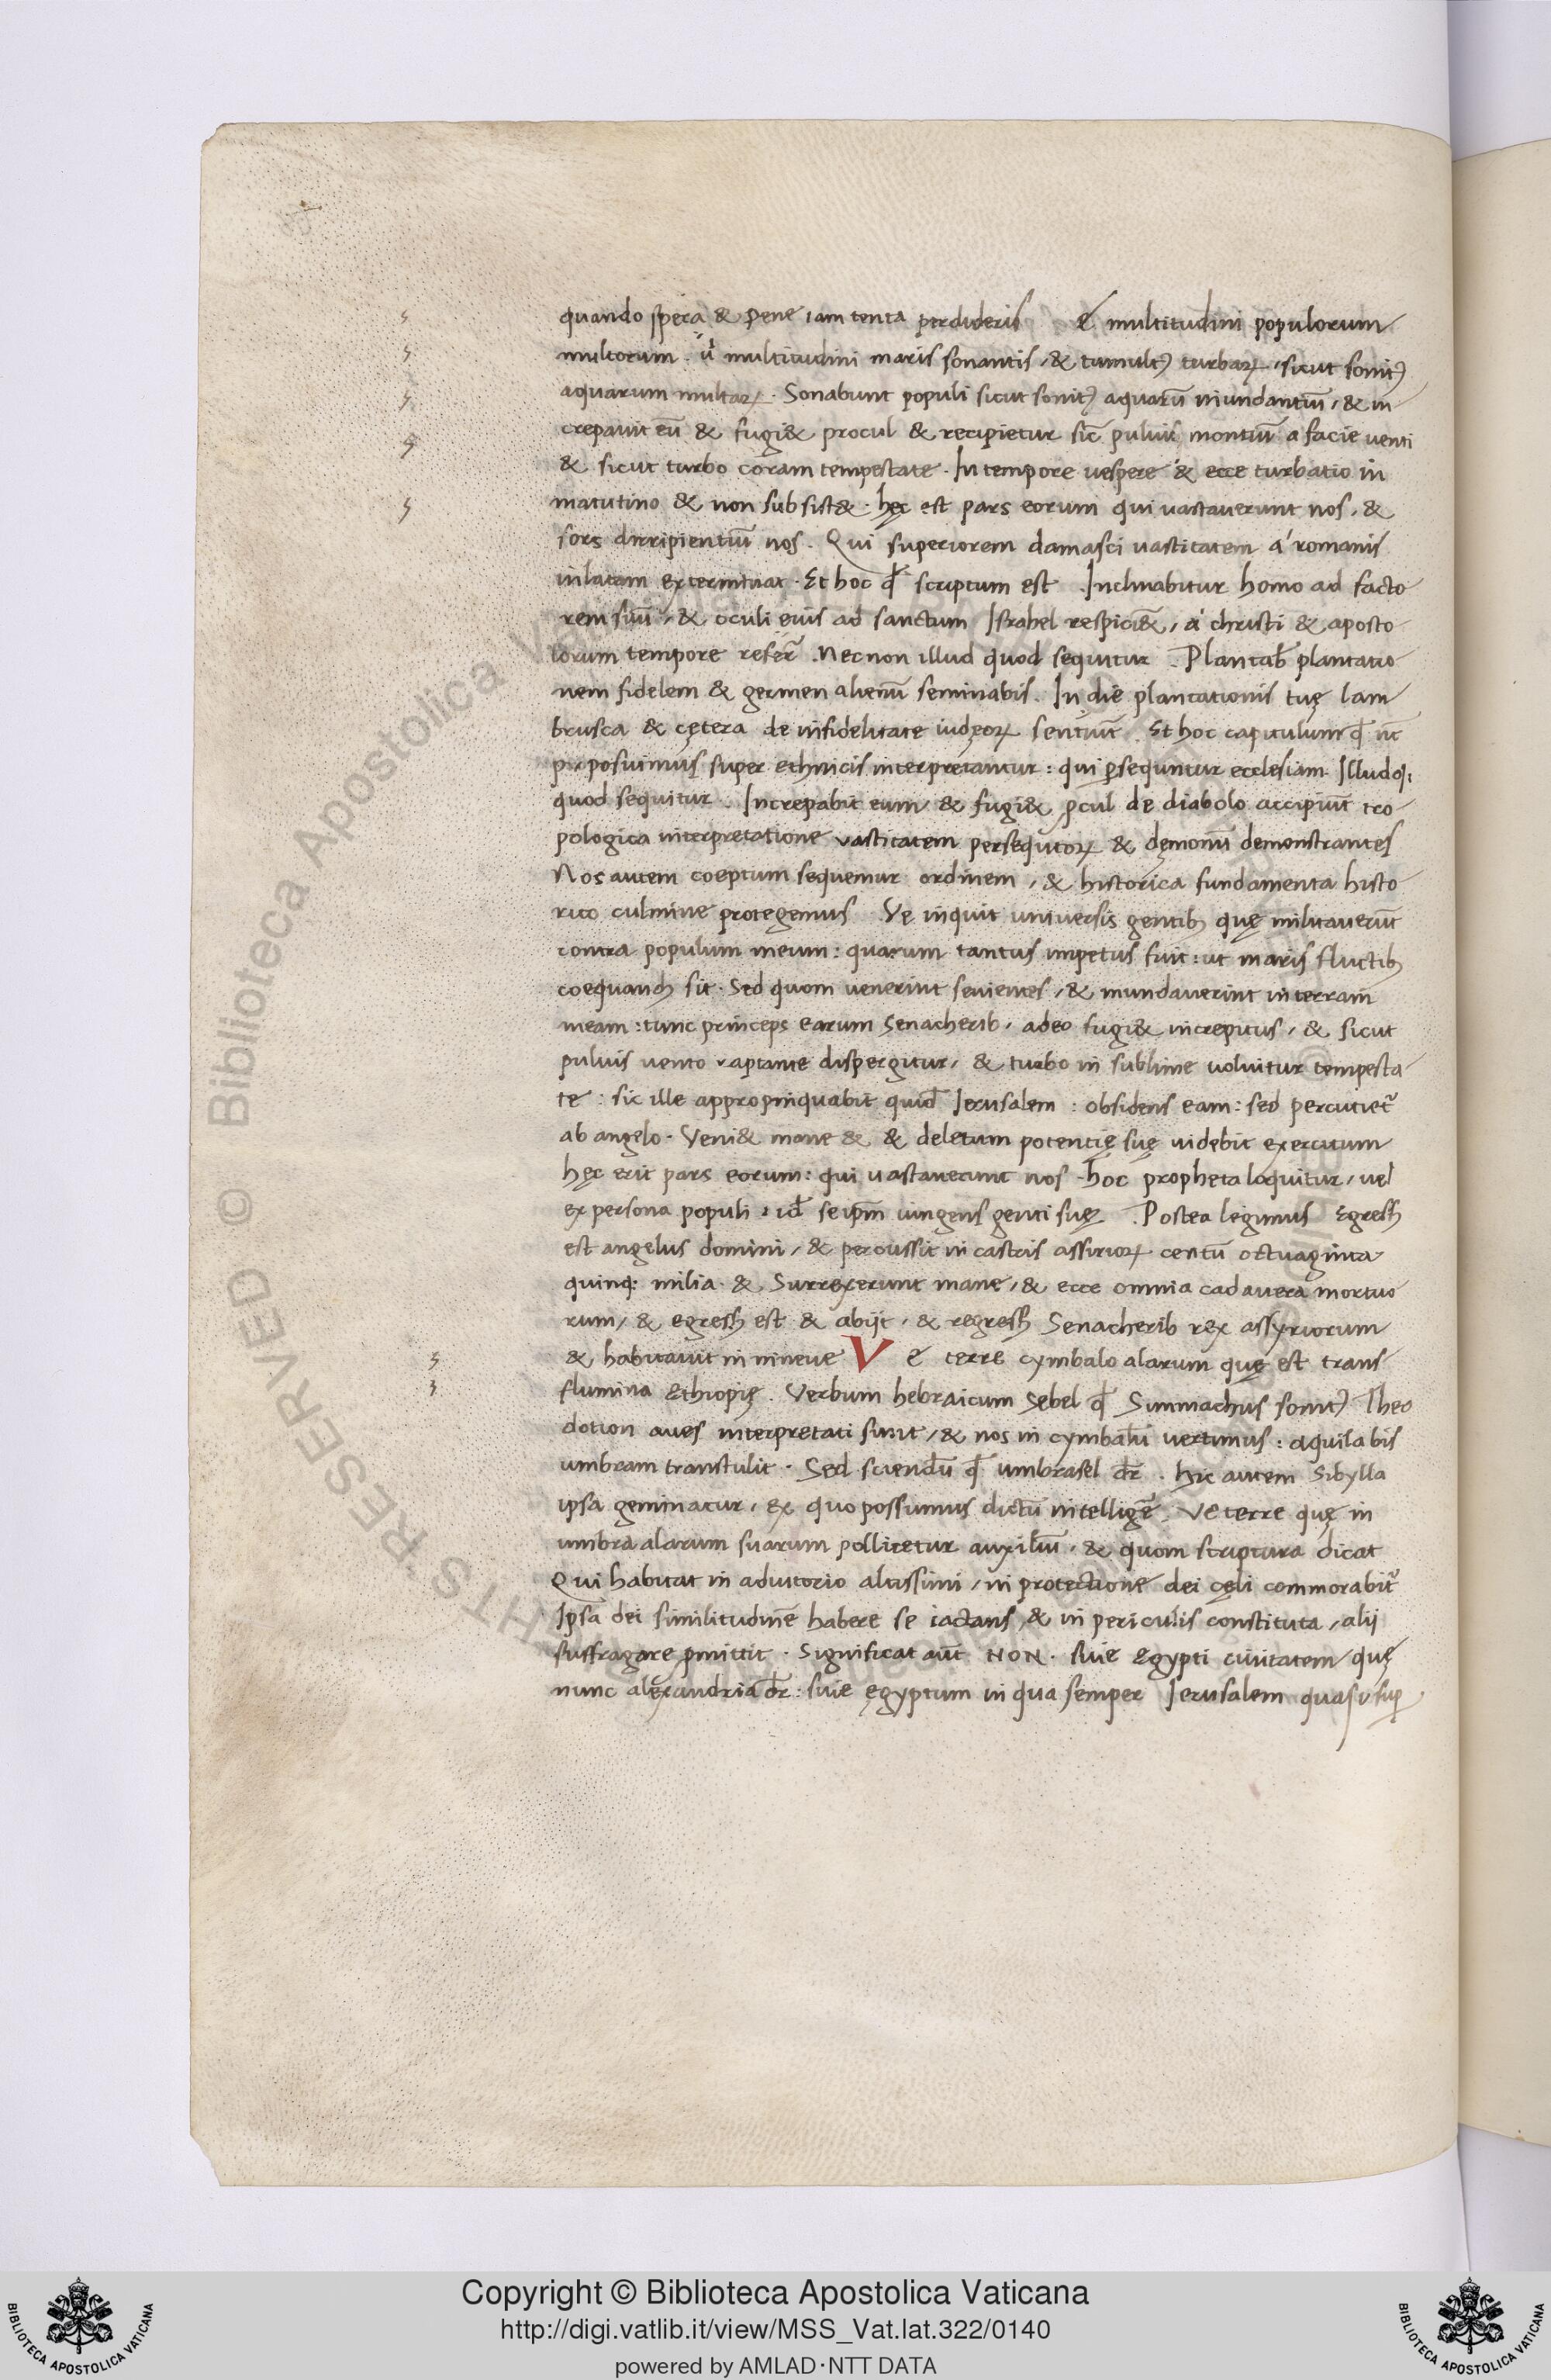 quando sperã & pene iam tenta perdideris e multitudini populorum
multorum. ut multitudini maris sonantis, & tumultꝰ turbaꝝ, sicut sonitꝰ
aquarum multaꝝ. Sonabunt populi sicut sonitꝰ aquarũ inundantiũ, & in
crepauit eũ & fugi& procul & recipietur sic̃ puluis montiũ a facie venti
& sicut turbo coram tempestate. In tempore vespere & ecce turbatio in
matutino & non subsist&. hęc est pars eorum qui vastauerunt nos, &
sors dirripientiũ nos. Qui superiorem damasci vastitatem á romanis
inlatam exterminat. Et hoc qđ scriptum est Inclinabitur homo ad facto
rem suũ, & oculi eius ad sanctum Israhel respici&, á christi & aposto
lorum tempore refer̃. Nec non illud quod sequitur. Plantab̃ plantatio
nem fidelem & germen alienũ seminabis. In die plantationis tuę lam
brusca & cętera de infidelitate iudęoꝝ sentiũt. Et hoc capitulum qđ nc̃
proposuimus super ethnicis interpretantur: qui ꝑsequntur ecclesiam. Illudqꝫ
quod sequitur. Increpabit eum, & fugi& ꝓcul de diabolo accipiũt tro
pologica interpretatione vastitatem persequtoꝝ & dęmonũ demonstrantes
Nos autem coeptum sequemur ordinem, & historica fundamenta histo
rico culmine protegemus. Vę inquit universis gentibꝫ quę militauerũt
contra populum meum: quarum tantus impetus fuit: ut maris fluctibꝫ
coequandꝰ sit. Sed quom uenerint seuientes, & inundauerint in terram
meam: tunc princeps earum Senacherib, adeo fugi& increpitus, & sicut
puluis vento raptante dispergitur, & turbo in sublime uoluitur tempesta
te: sic ille appropinquabit quid̃ Ierusalem: obsidens eam: sed percutiet̃
ab angelo. Veni& mane & & deletum potentię suę uidebit exercitum
hęc erit pars eorum: qui vastauerunt nos. hoc propheta loquitur, uel
ex persona populi, id̃ seipm̃ iungens genti suę. Postea legimus Egressꝰ
est angelus domini, & percussit in castris assirioꝝ centũ octuaginta
quinqꝫ milia. & Surrexerunt mane, & ecce omnia cadauera mortuo
rum, & egressꝰ est & abijt, & regressꝰ Senacherib rex assyriorum
& habitauit in nineue Ve terre cymbalo alarum quę est trans
flumina Ethiopię. Verbum hebraicum Sebel qđ Summachus sonitꝰ Theo
dotion aves interpretati sunt, & nos in cymbalũ vertimus: aquila bis
umbram transtulit. Sed sciendũ qđ umbrasel dr̃. hic autem Sibylla
ipsa geminatur, ex quo possumus dictũ intelligẽ. Ve terre quę in
umbra alarum suarum pollicetur auxiliũ, & quom scriptura dicat
Qui habitat in adiutorio altissimi, in protectione dei cęli commorabit̃
Ipsa dei similitudinẽ habere se iactans, & in periculis constituta, alij
suffragare ꝑmittit. Significat aũt NON. siue Egypti ciuitatem quę
nunc alexandria dr̃: siue ęgyptum in qua semper Ierusalem quasi sup̃
Copyright © Biblioteca Apostolica Vaticana
http://digi.vatlib.it/view/MSS_Vat.lat.322/0140
powered by AMLAD·NTT DATA